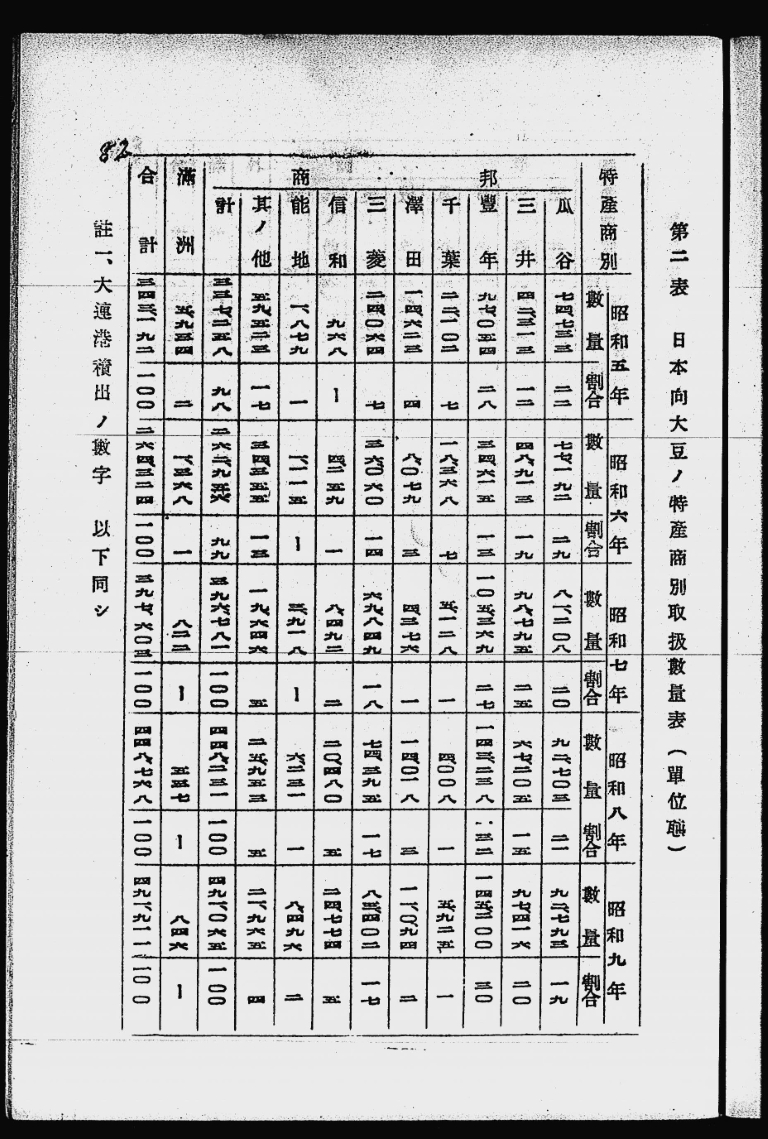 第二表 日本向大豆ノ特產商別取扱數量表（單位瓲）
特產商別 昭和五年 昭和六年 昭和七年 昭和八年 昭和九年
數量 割合 數量 割合 數量 割合 數量 割合 數量 割合
邦商
瓜谷 七四、七三三 二二 七七、一九二 二九 八一、二〇八 二〇 九二、七〇三 二一 九二、七九三 一九
三井 四二、三一三 一二 四八、九一三 一九 九八、七九五 二五 六七、二〇五 一五 九七、四一六 二〇
豐年 九七、〇五四 二八 三四、六一五 一三 一〇五、三六九 二七 一四三、二三八 三二 一四五、三〇〇 三〇
千葉 二二、一〇二 七 一八、三六八 七 五、一二八 一 四、〇〇八 一 五、九二五 一
澤田 一四、六二三 四 八、〇七九 三 四、三七六 一 一四、〇一八 三 一一、〇九四 二
三菱 二四、〇六四 七 三六、〇六〇 一四 六九、八四九 一八 七四、三九五 一七 八三、四〇二 一七
信和 九六八 ー 四、二五九 一 八、四九二 二 二〇、四八〇 五 二四、七七四 五
能地 一、八七九 一 一、一一五 ー 三、九一八 ー 六、二三一 一 八、四九六 二
其ノ他 五九、五二三 一七 三四、三五五 一三 一九、六四六 五 二五、九五三 五 二一、九六五 四
計 三三七、二五八 九八 二六二、九五六 九九 三九六、七八一 一〇〇 四四八、二三一 一〇〇 四九一、〇六五 一〇〇
滿洲 五、九三四 二 一、三六八 一 八二二 ー 五三七 ー 八四六 ー
合計 三四三、一九二 一〇〇 二六四、三二四 一〇〇 三九七、六〇三 一〇〇 四四八、七六八 一〇〇 四九一、九一一 一〇〇
註一、大連港積出ノ數字 以下同シ
82